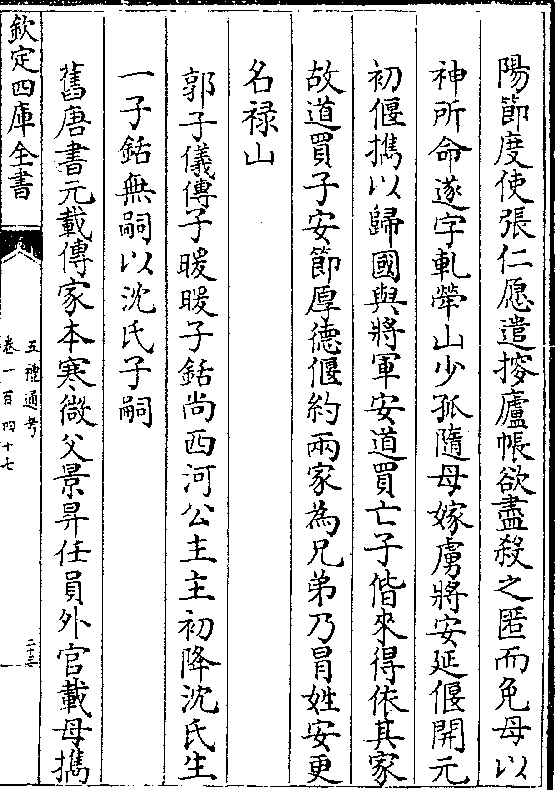 陽節度使張仁愿遣搜廬帳欲盡殺之匿而免母以
神所命遂字軋犖山少孤隨母嫁虜將安延偃開元
初偃攜以歸國與將軍安道買亡子偕來得依其家
故道買子安節厚德偃約兩家為兄弟乃冐姓安更
名禄山
郭子儀傳子曖曖子銛尚西河公主主初降沈氏生
一子銛無嗣以沈氏子嗣
舊唐書元載傳家本寒微父景昇任員外官載母攜
欽定四庫全書
五禮通考
卷一百四十七
二十三